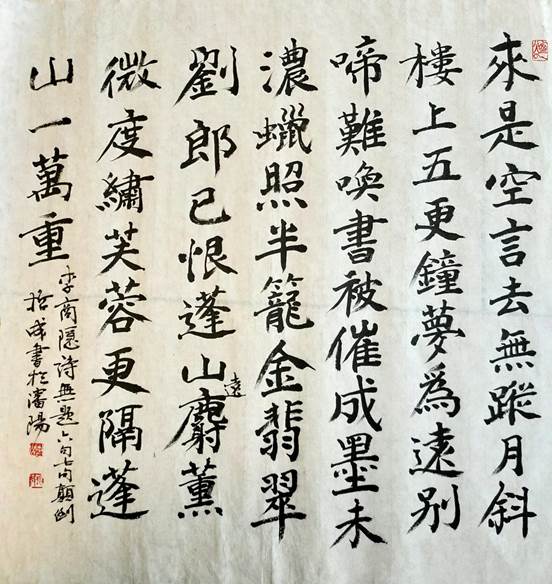 來是空言去無蹤月斜
樓上五更鐘夢爲遠別
啼難喚書被催成墨未
濃蠟照半籠金翡翠
劉郎已恨蓬山遠麝薰
微度繡芙蓉更隔蓬
山一萬重
李商隱詩無題六句七句顛倒
成書於瀋陽